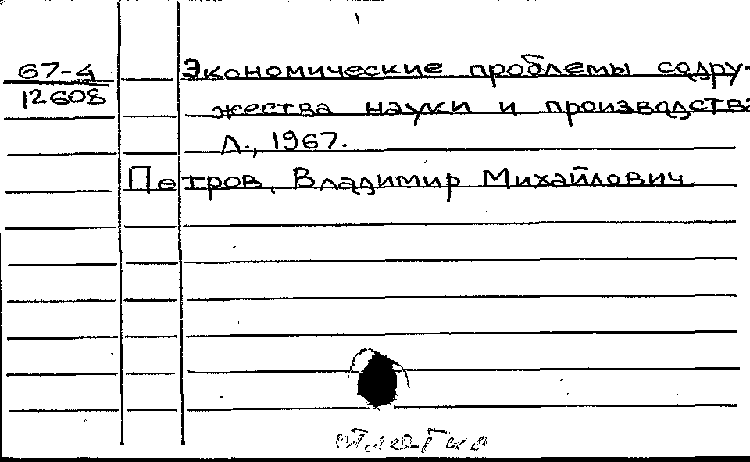 67-4
12608
Экономические проблемы содру-
жества науки и производства
Л., 1967.
Петров, Владимир Михайлович